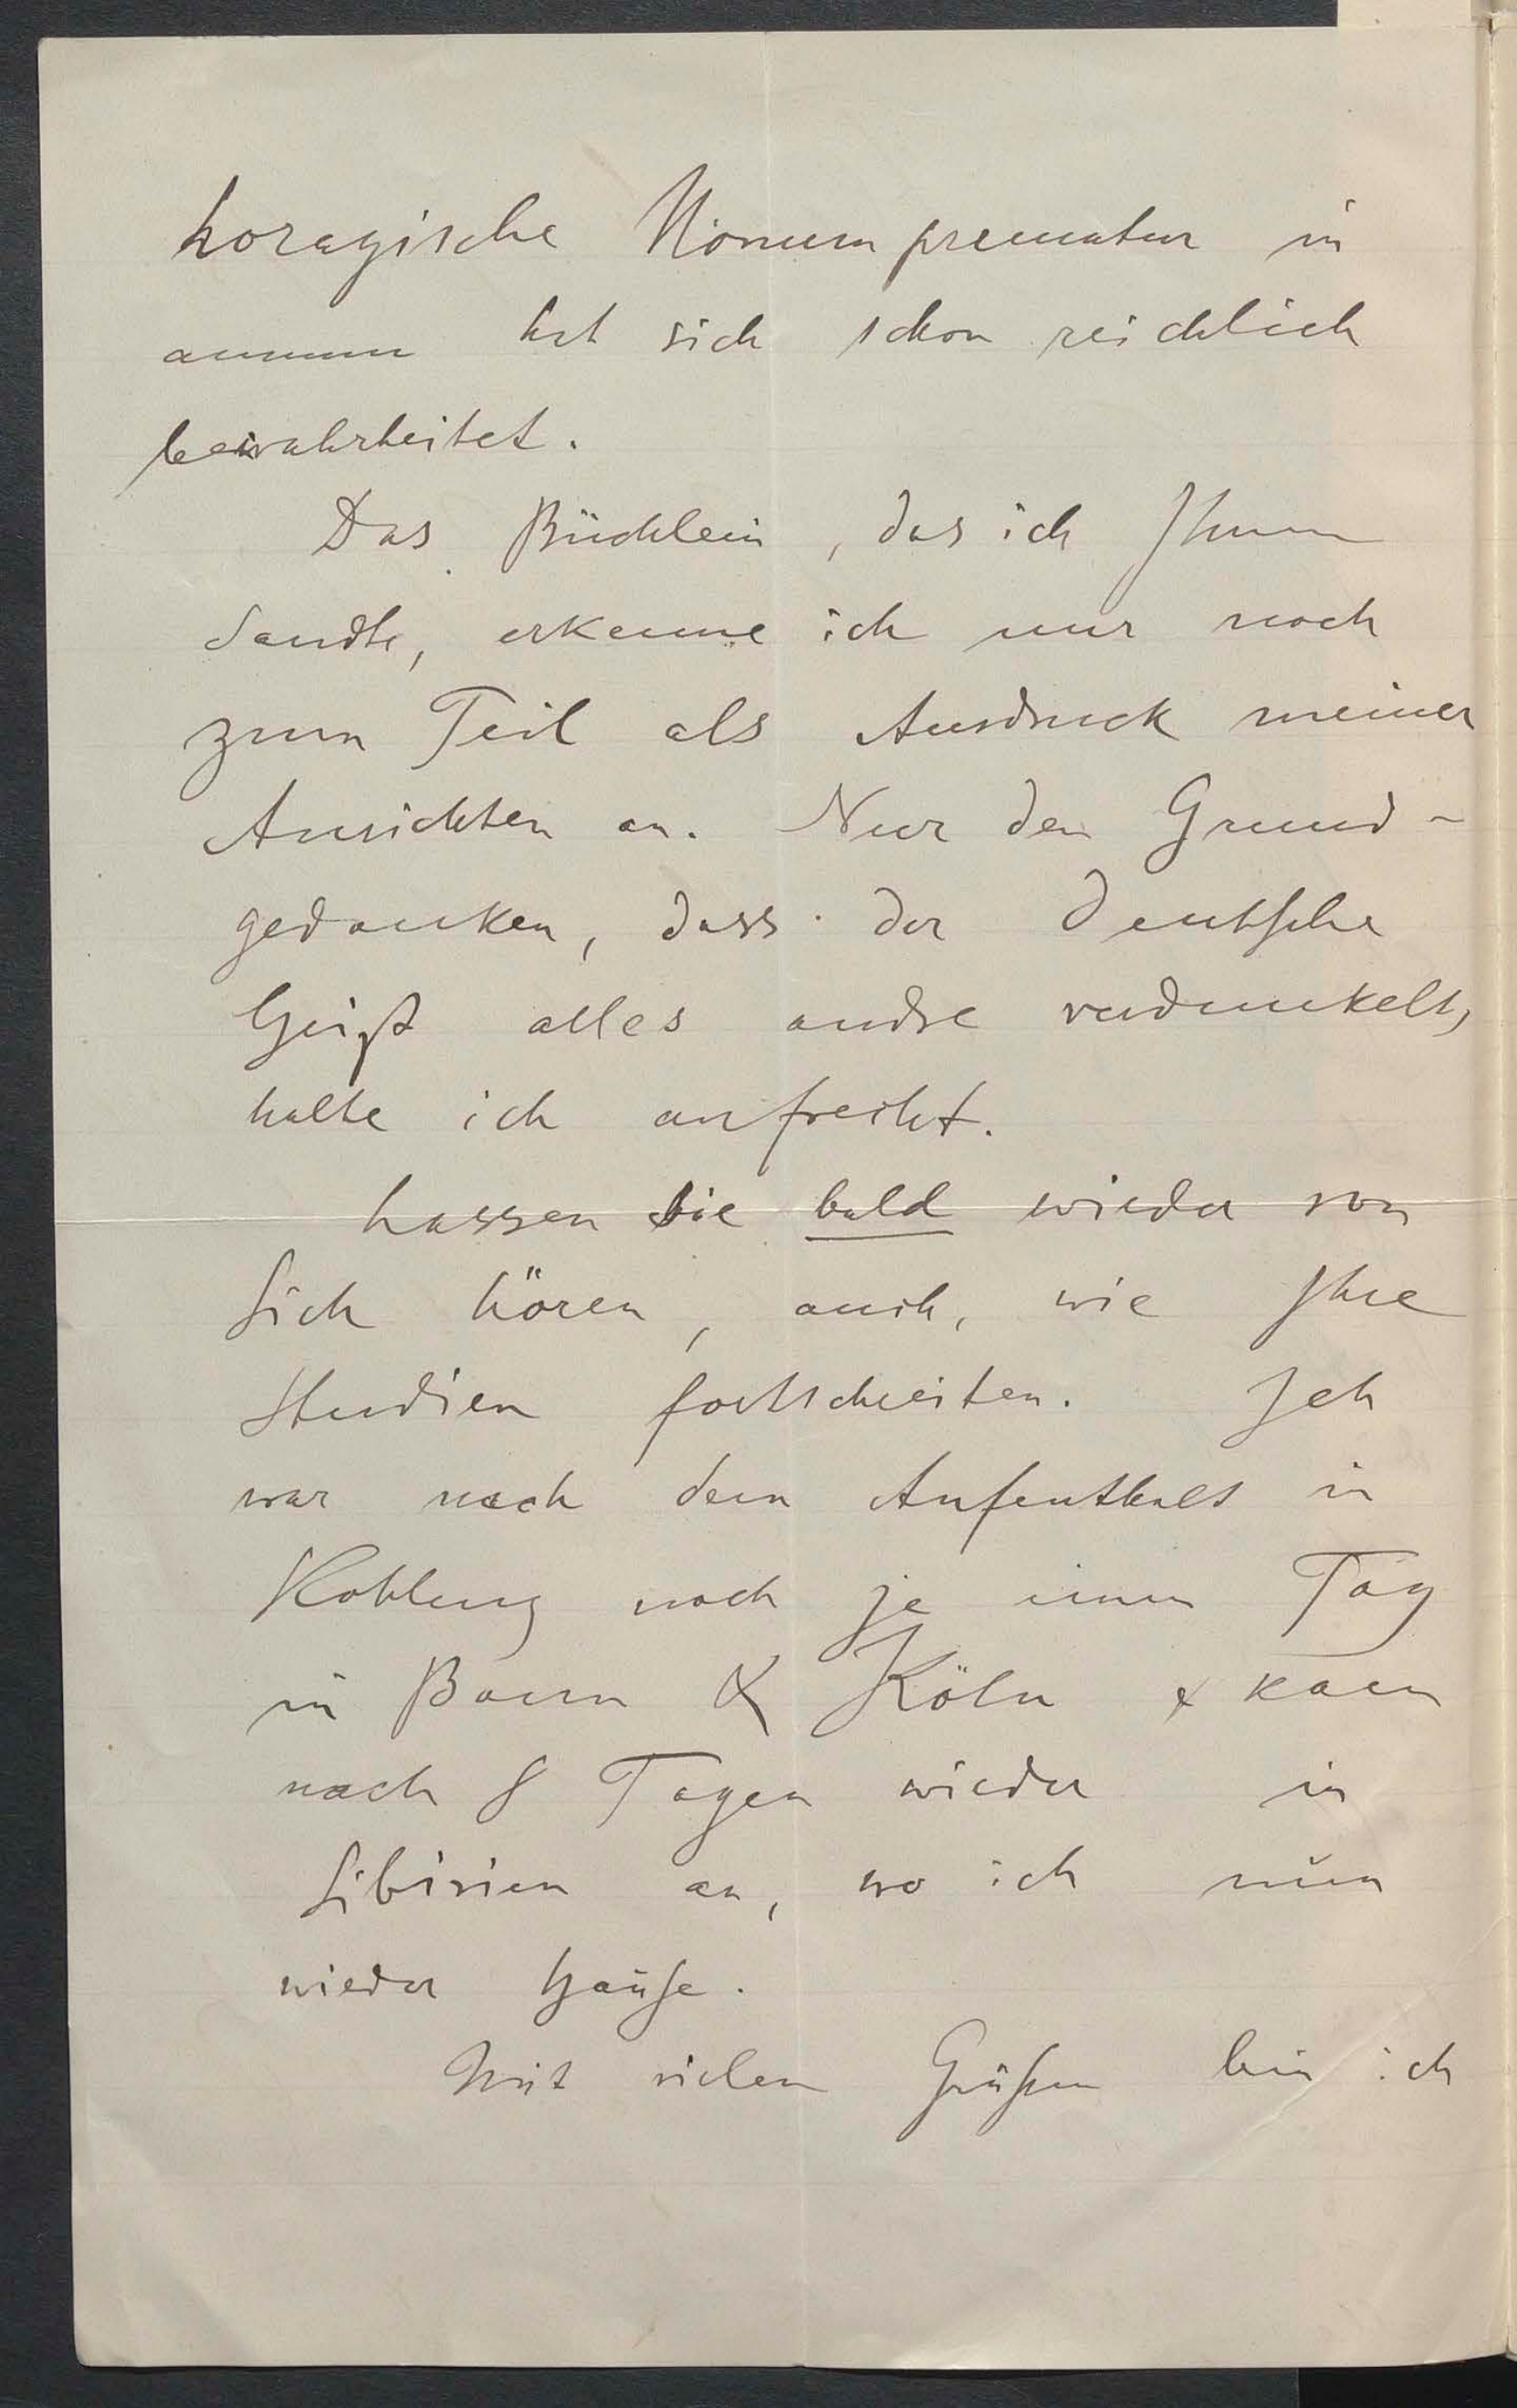 horazische Nonum prematur in
annum hat sich schon reichlich
bewahrheitet.
Das Büchlein, das ich Ihnen
sandte, erkenne ich nur noch
zum Teil als Ausdruck meiner
Ansichten an. Nur den Grund-
gedanken, dass der deutsche
Geist alles andre verdunkelt,
halte ich aufrecht.
Lassen Sie bald wieder von
Sich hören, auch, wie Ihre
Studien fortschreiten. Ich
war nach dem Aufenthalt in
Koblenz noch je einen Tag
in Bonn & Köln & kam
nach 8 Tagen wieder in
Sibirien an, wo ich nun
wieder hause.
Mit vielen Grüßen bin ich